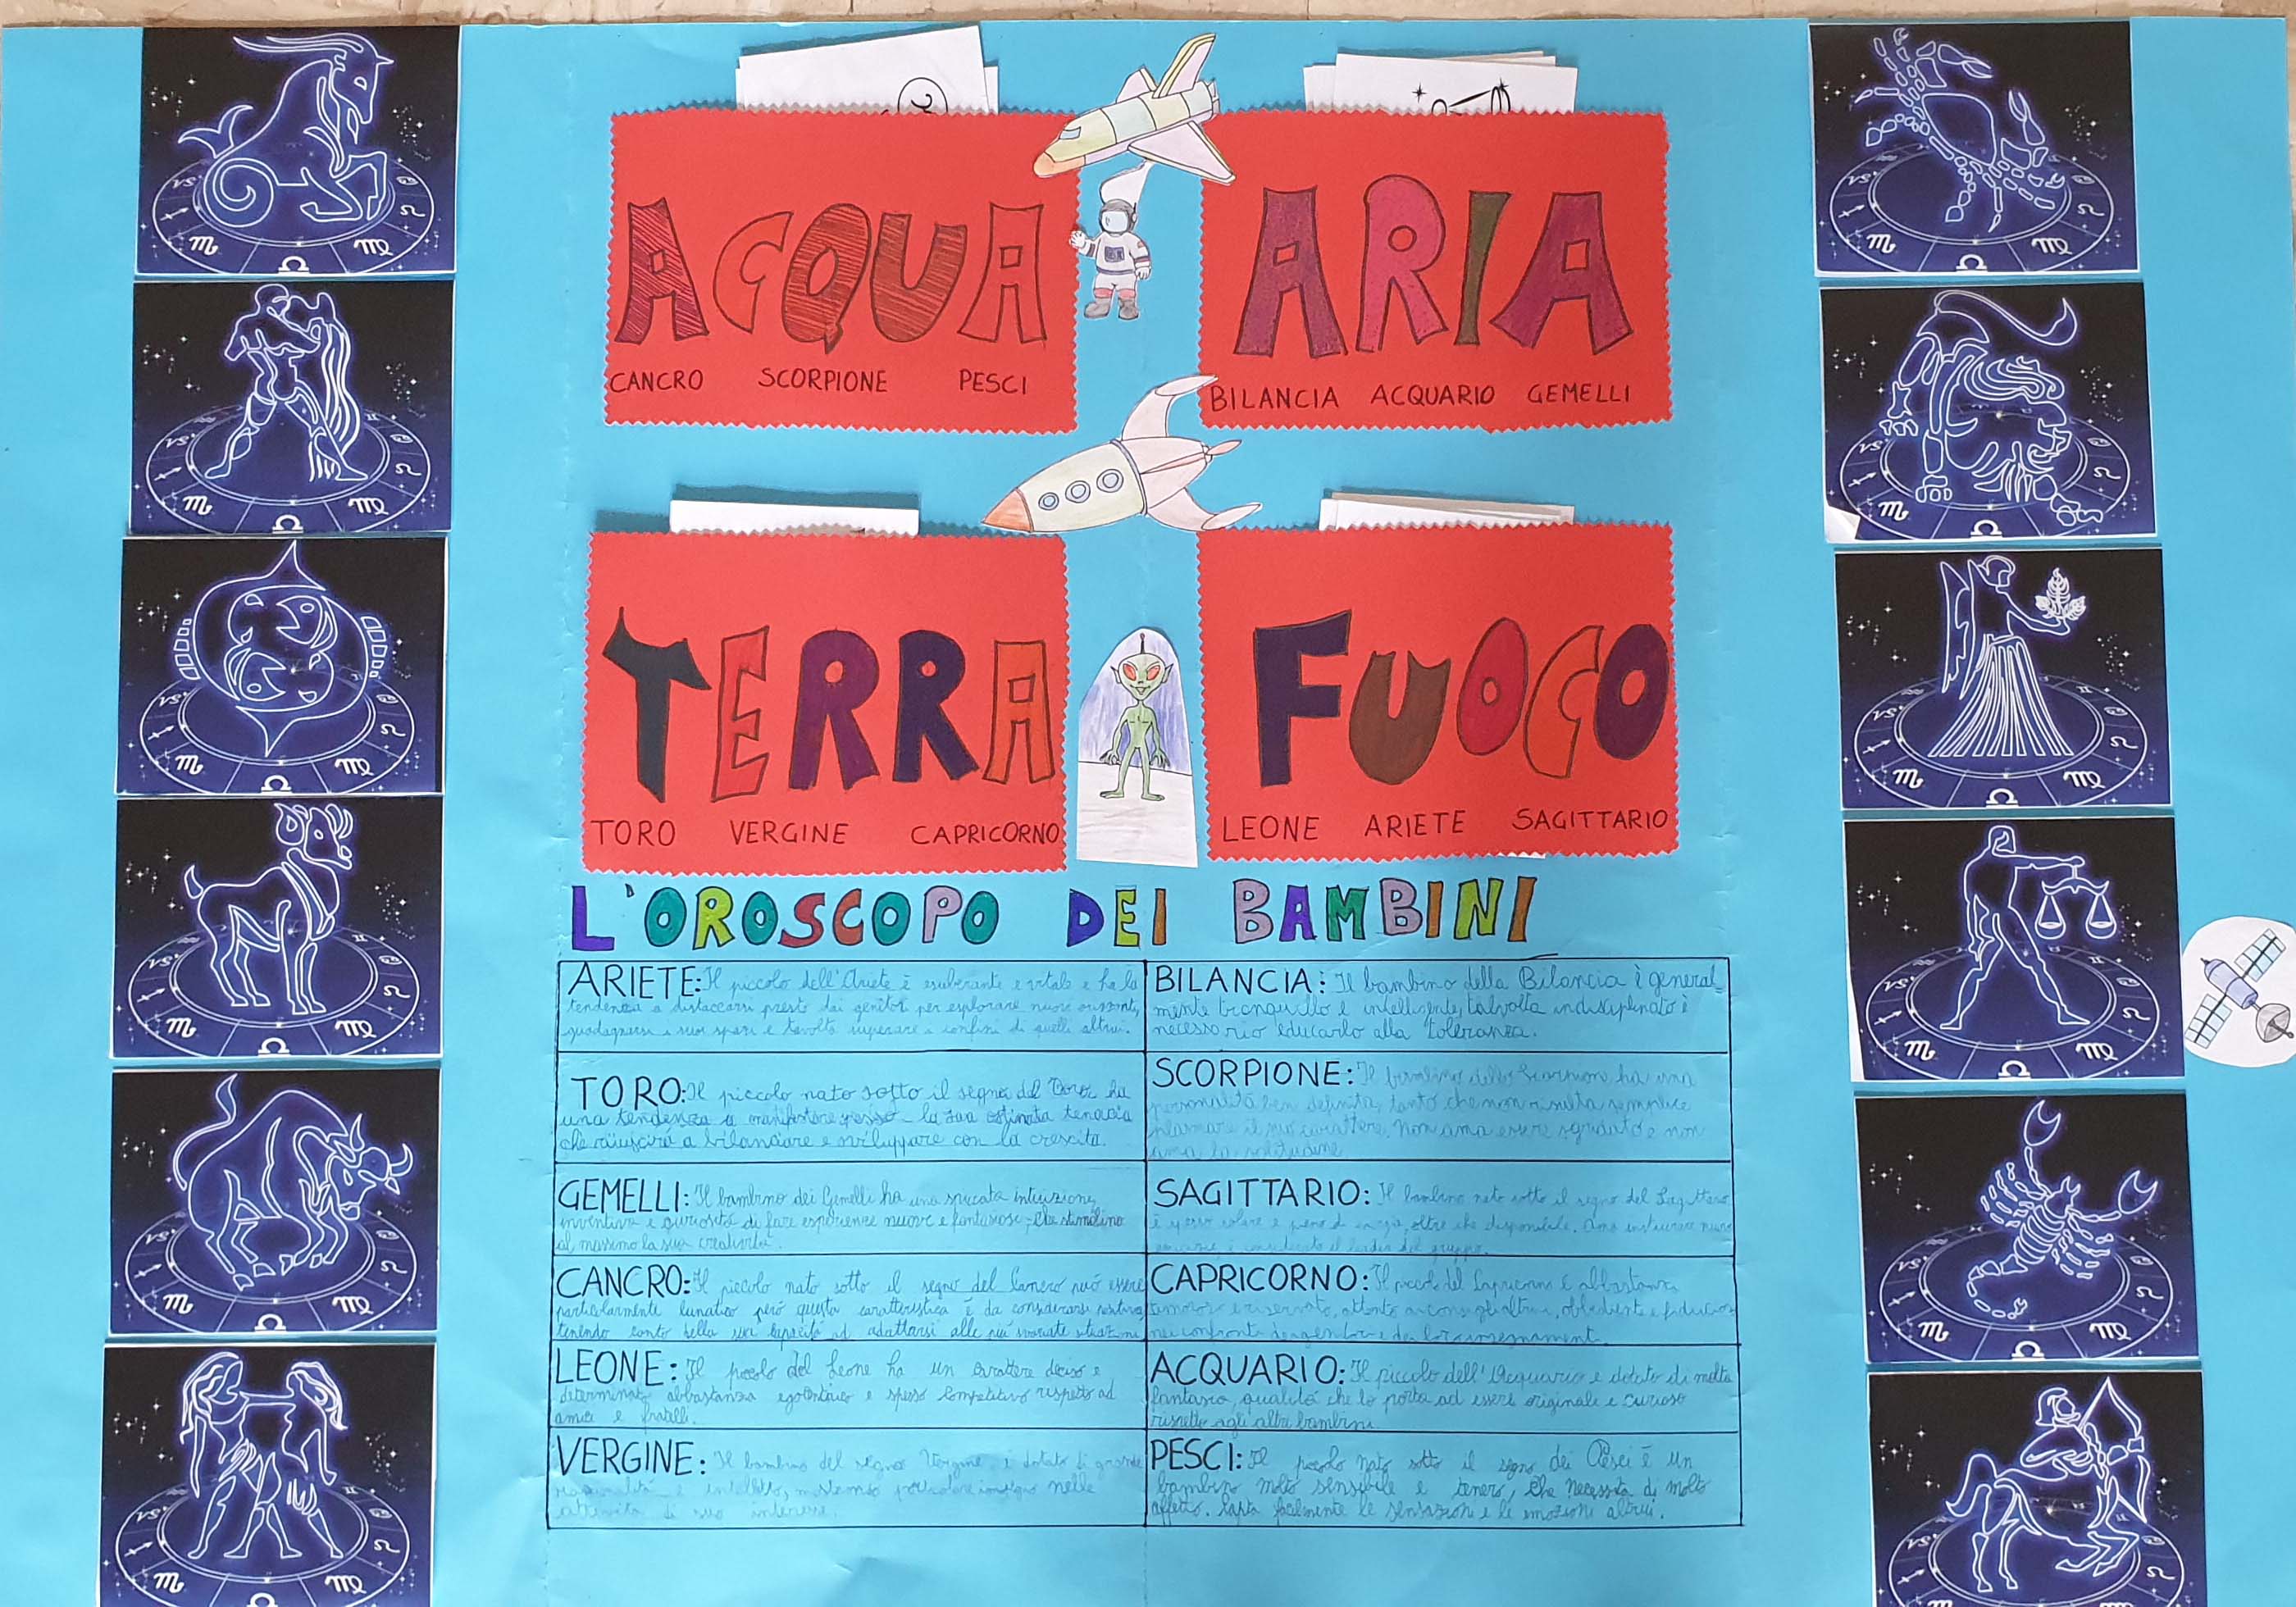 ACQUA
CANCRO SCORPIONE PESCI
ARIA
BILANCIA ACQUARIO GEMELLI
TERRA
TORO VERGINE CAPRICORNO
FUOCO
LEONE ARIETE SAGITTARIO
L'OROSCOPO DEI BAMBINI
ARIETE: Il piccolo dell'Ariete è esuberante e vitale e ha la
tendenza a distaccarsi presto dai genitori per esplorare nuovi orizzonti,
guadagnarsi i suoi spazi e talvolta superare i confini di quelli altrui.
TORO: Il piccolo nato sotto il segno del Toro ha
una tendenza a manifestare spesso la sua ostinata tenacia
che riuscirà a bilanciare e sviluppare con la crescita.
GEMELLI: Il bambino dei Gemelli ha una spiccata intuizione,
inventiva e curiosità di fare esperienze nuove e fantasiose, che stimolino
al massimo la sua creatività.
CANCRO: Il piccolo nato sotto il segno del Cancro può essere
particolarmente lunatico però questa caratteristica è da considerarsi positiva,
tenendo conto della sua capacità ad adattarsi alle più svariate situazioni
LEONE: Il piccolo del Leone ha un carattere deciso e
determinato, abbastanza egocentrico e spesso competitivo rispetto ad
amici e fratelli.
VERGINE: Il bambino del segno Vergine è dotato di grande
razionalità e intelletto, mettendo particolare impegno nelle
attività di suo interesse.
BILANCIA: Il bambino della Bilancia è general
mente tranquillo e intelligente, talvolta indisciplinato è
necessario educarlo alla tolleranza.
SCORPIONE: Il bambino dello Scorpion ha una
personalità ben definita, tanto che non risulta semplice
plasmare il suo carattere. Non ama essere sgridato e non
ama la solitudine.
SAGITTARIO: Il bambino nato sotto il segno del Sagittario
è spesso solare e pieno di energia, oltre che disponibile. Ama instaurare nuove
amicizie, è considerato il leader del gruppo.
CAPRICORNO: Il piccolo del Capricorno è abbastanza
timoroso e riservato, attento ai consigli altrui, obbediente e fiducioso
nei confronti dei genitori e dei loro insegnamenti.
ACQUARIO: Il piccolo dell'Acquario è dotato di molta
fantasia, qualità che lo porta ad essere originale e curioso
rispetto agli altri bambini.
PESCI: Il piccolo nato sotto il segno dei Pesci è un
bambino molto sensibile e tenero, che necessita di molto
affetto. Capta facilmente le sensazioni e le emozioni altrui.